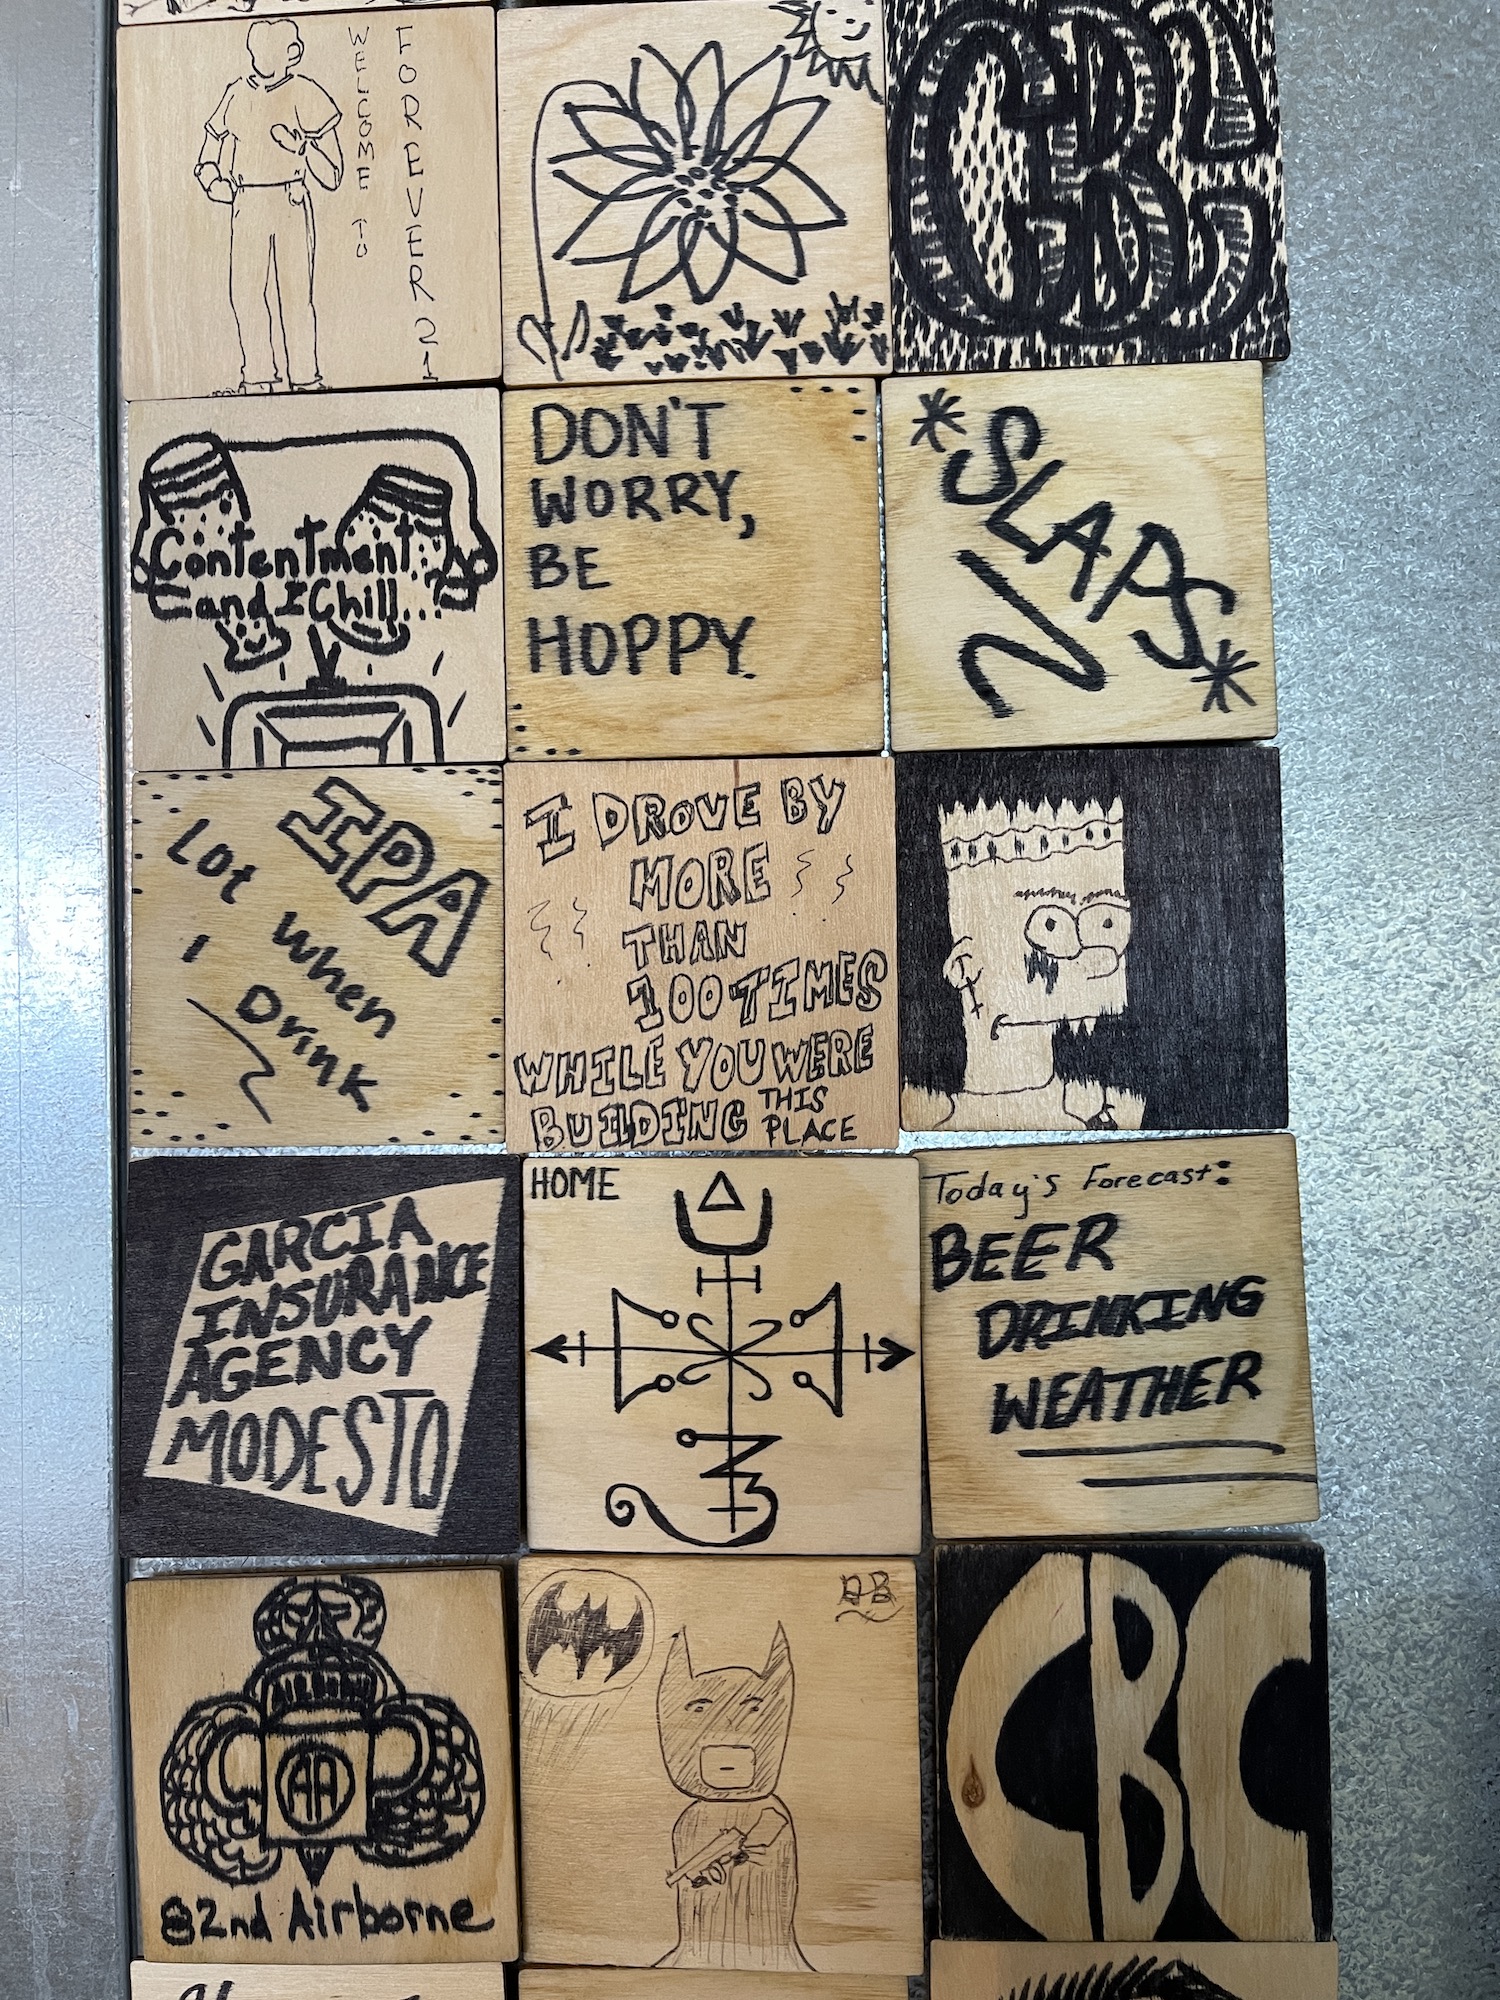 WELCOME TO
FOREVER 21
CBC
Contentment
and I Chill..?
DON'T
WORRY,
BE
HOPPY.
*SLAPS*
IPA
Lot when
I Drink
I DROVE BY
MORE
THAN
100 TIMES
WHILE YOU WERE
BUILDING THIS
PLACE
GARCIA
INSURANCE
AGENCY
MODESTO
HOME
Today's Forecast:
BEER
DRINKING
WEATHER
AIRBORNE
AA
82nd Airborne
CBC